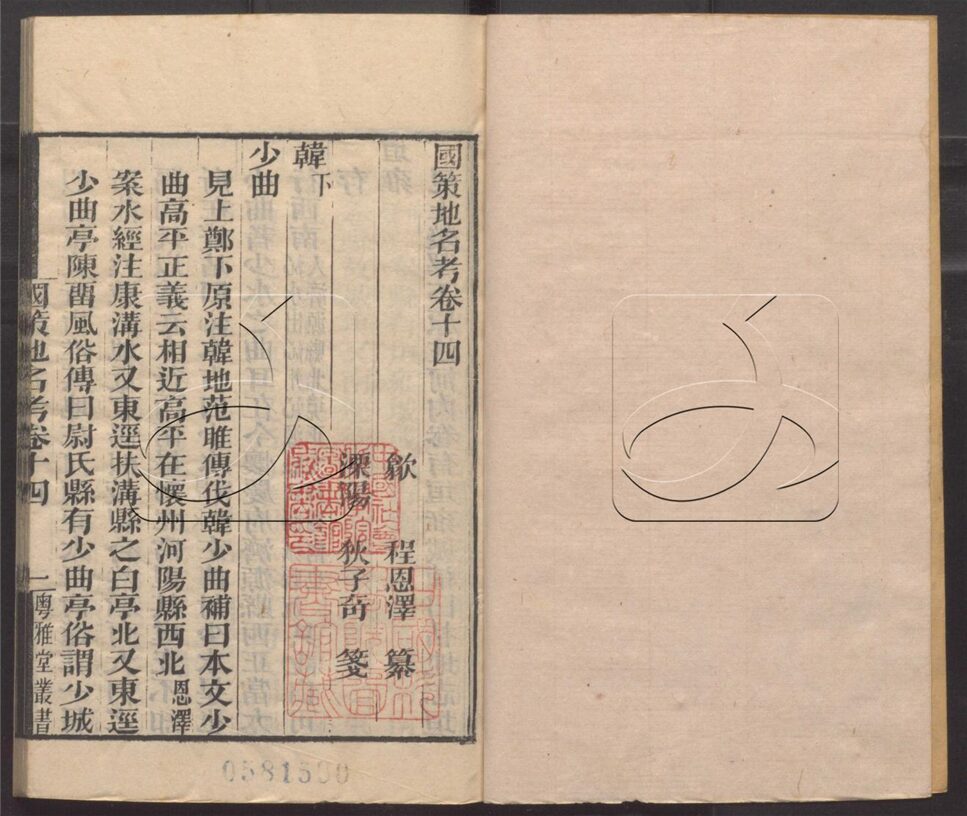 國策地名考卷十四
歙 程恩澤 纂
溧陽 狄子奇 箋
韓下
少曲
見上鄭下原注韓地范雎傳伐韓少曲補曰本文少
曲高平正義云相近高平在懷州河陽縣西北恩澤
案水經注康溝水又東逕扶溝縣之白亭北又東逕
少曲亭陳留風俗傳曰尉氏縣有少曲亭俗謂少城
國策地名考卷十四 一 粵雅堂叢書
0581530